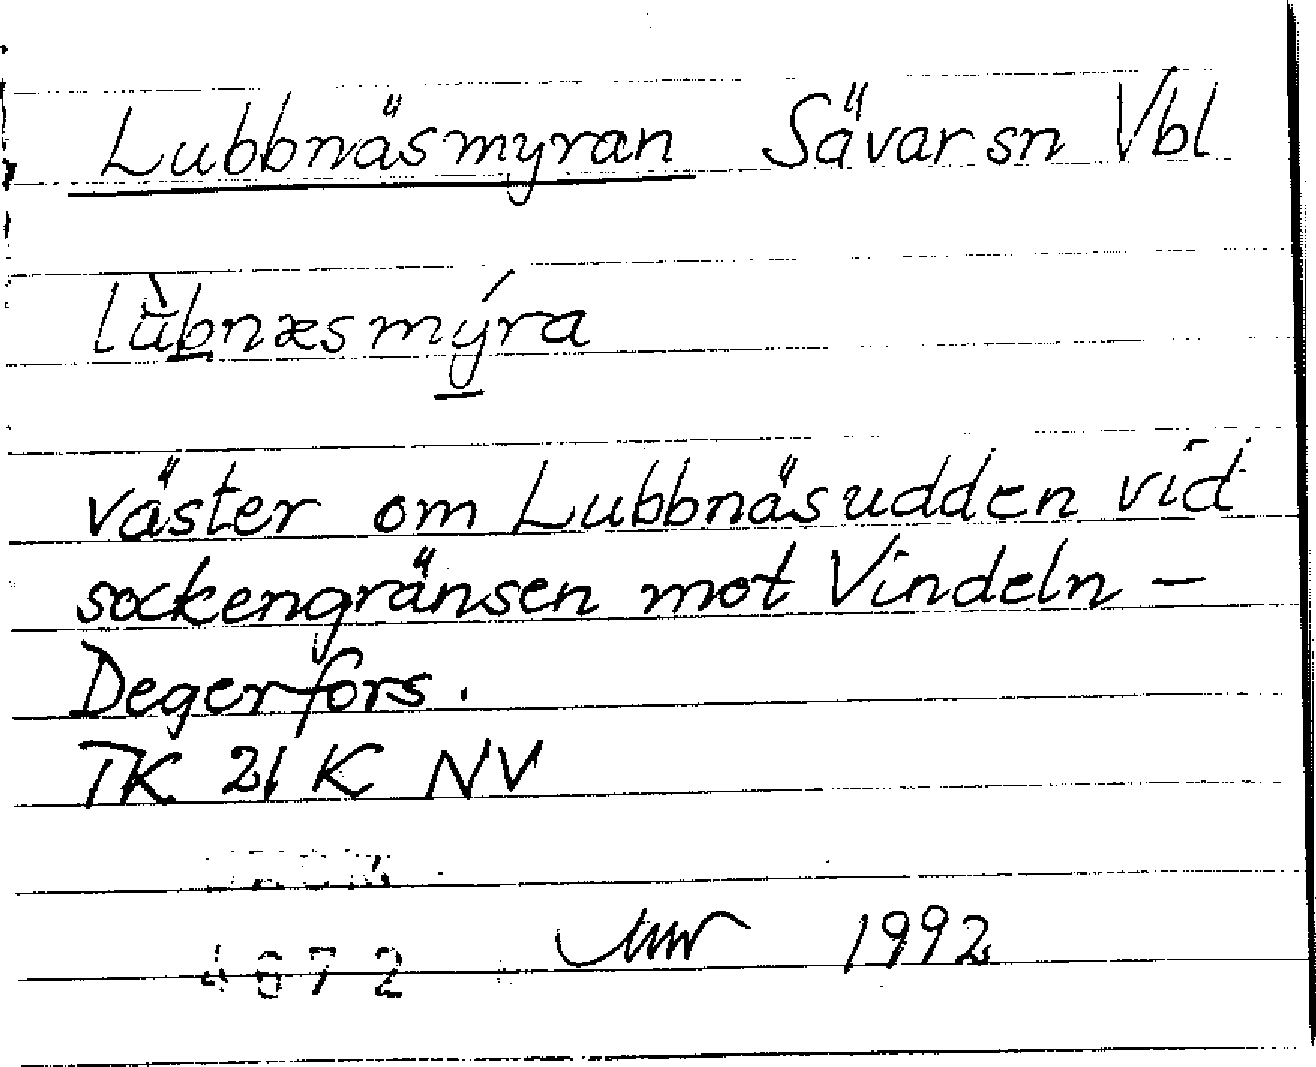 Lubbnäsmyran Sävar sn Vbl
lùbnæsmýra
väster om Lubbnäsudden vid
sockengränsen mot Vindeln –
Degerfors.
TK 21 K NV
1992